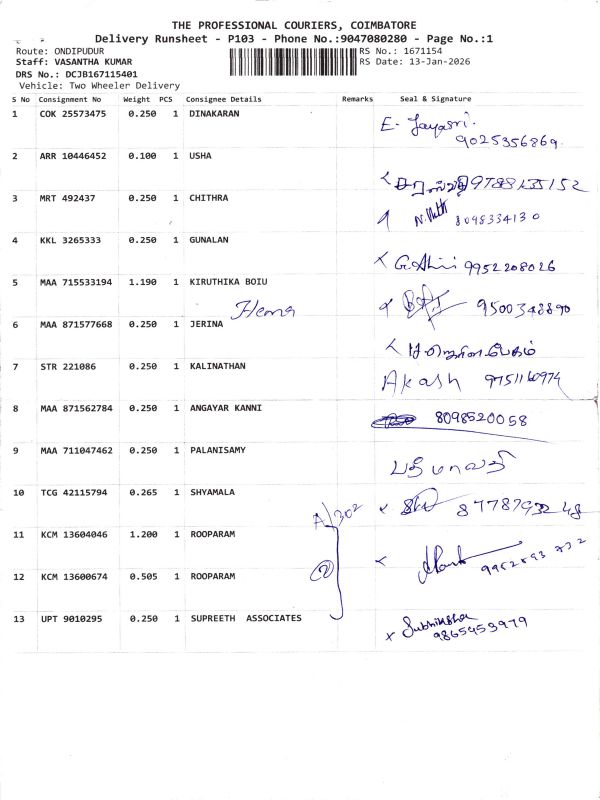 THE PROFESSIONAL COURIERS, COIMBATORE
Delivery Runsheet - P103 - Phone No.:9047080280 - Page No.:1
Route: ONDIPUDUR RS No.: 1671154
Staff: VASANTHA KUMAR RS Date: 13-Jan-2026
DRS No.: DCJB167115401
Vehicle: Two Wheeler Delivery
S No Consignment No Weight PCS Consignee Details Remarks Seal & Signature
1 COK 25573475 0.250 1 DINAKARAN
E. Jayasri.
9025356869.
2 ARR 10446452 0.100 1 USHA
3 MRT 492437 0.250 1 CHITHRA
8098334130
4 KKL 3265333 0.250 1 GUNALAN
9952208026
5 MAA 715533194 1.190 1 KIRUTHIKA BOIU
Hema
9500348890
6 MAA 871577668 0.250 1 JERINA
7 STR 221086 0.250 1 KALINATHAN
Akash 9751160974
8 MAA 871562784 0.250 1 ANGAYAR KANNI
8098520058
9 MAA 711047462 0.250 1 PALANISAMY
பத்மாவதி
10 TCG 42115794 0.265 1 SHYAMALA
A/302
11 KCM 13604046 1.200 1 ROOPARAM
12 KCM 13600674 0.505 1 ROOPARAM
2
13 UPT 9010295 0.250 1 SUPREETH ASSOCIATES
Subhiksha
9865453979